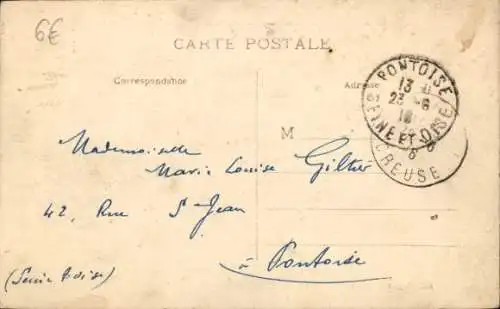 6€
CARTE POSTALE
Correspondance
Adresse
PONTOISE
13
23 - 6
SEINE ET OISE
CREUSE
M
Mademoiselle
Marie Louise Giltier
42, Rue St Jean
à Pontoise
(Seine & Oise)